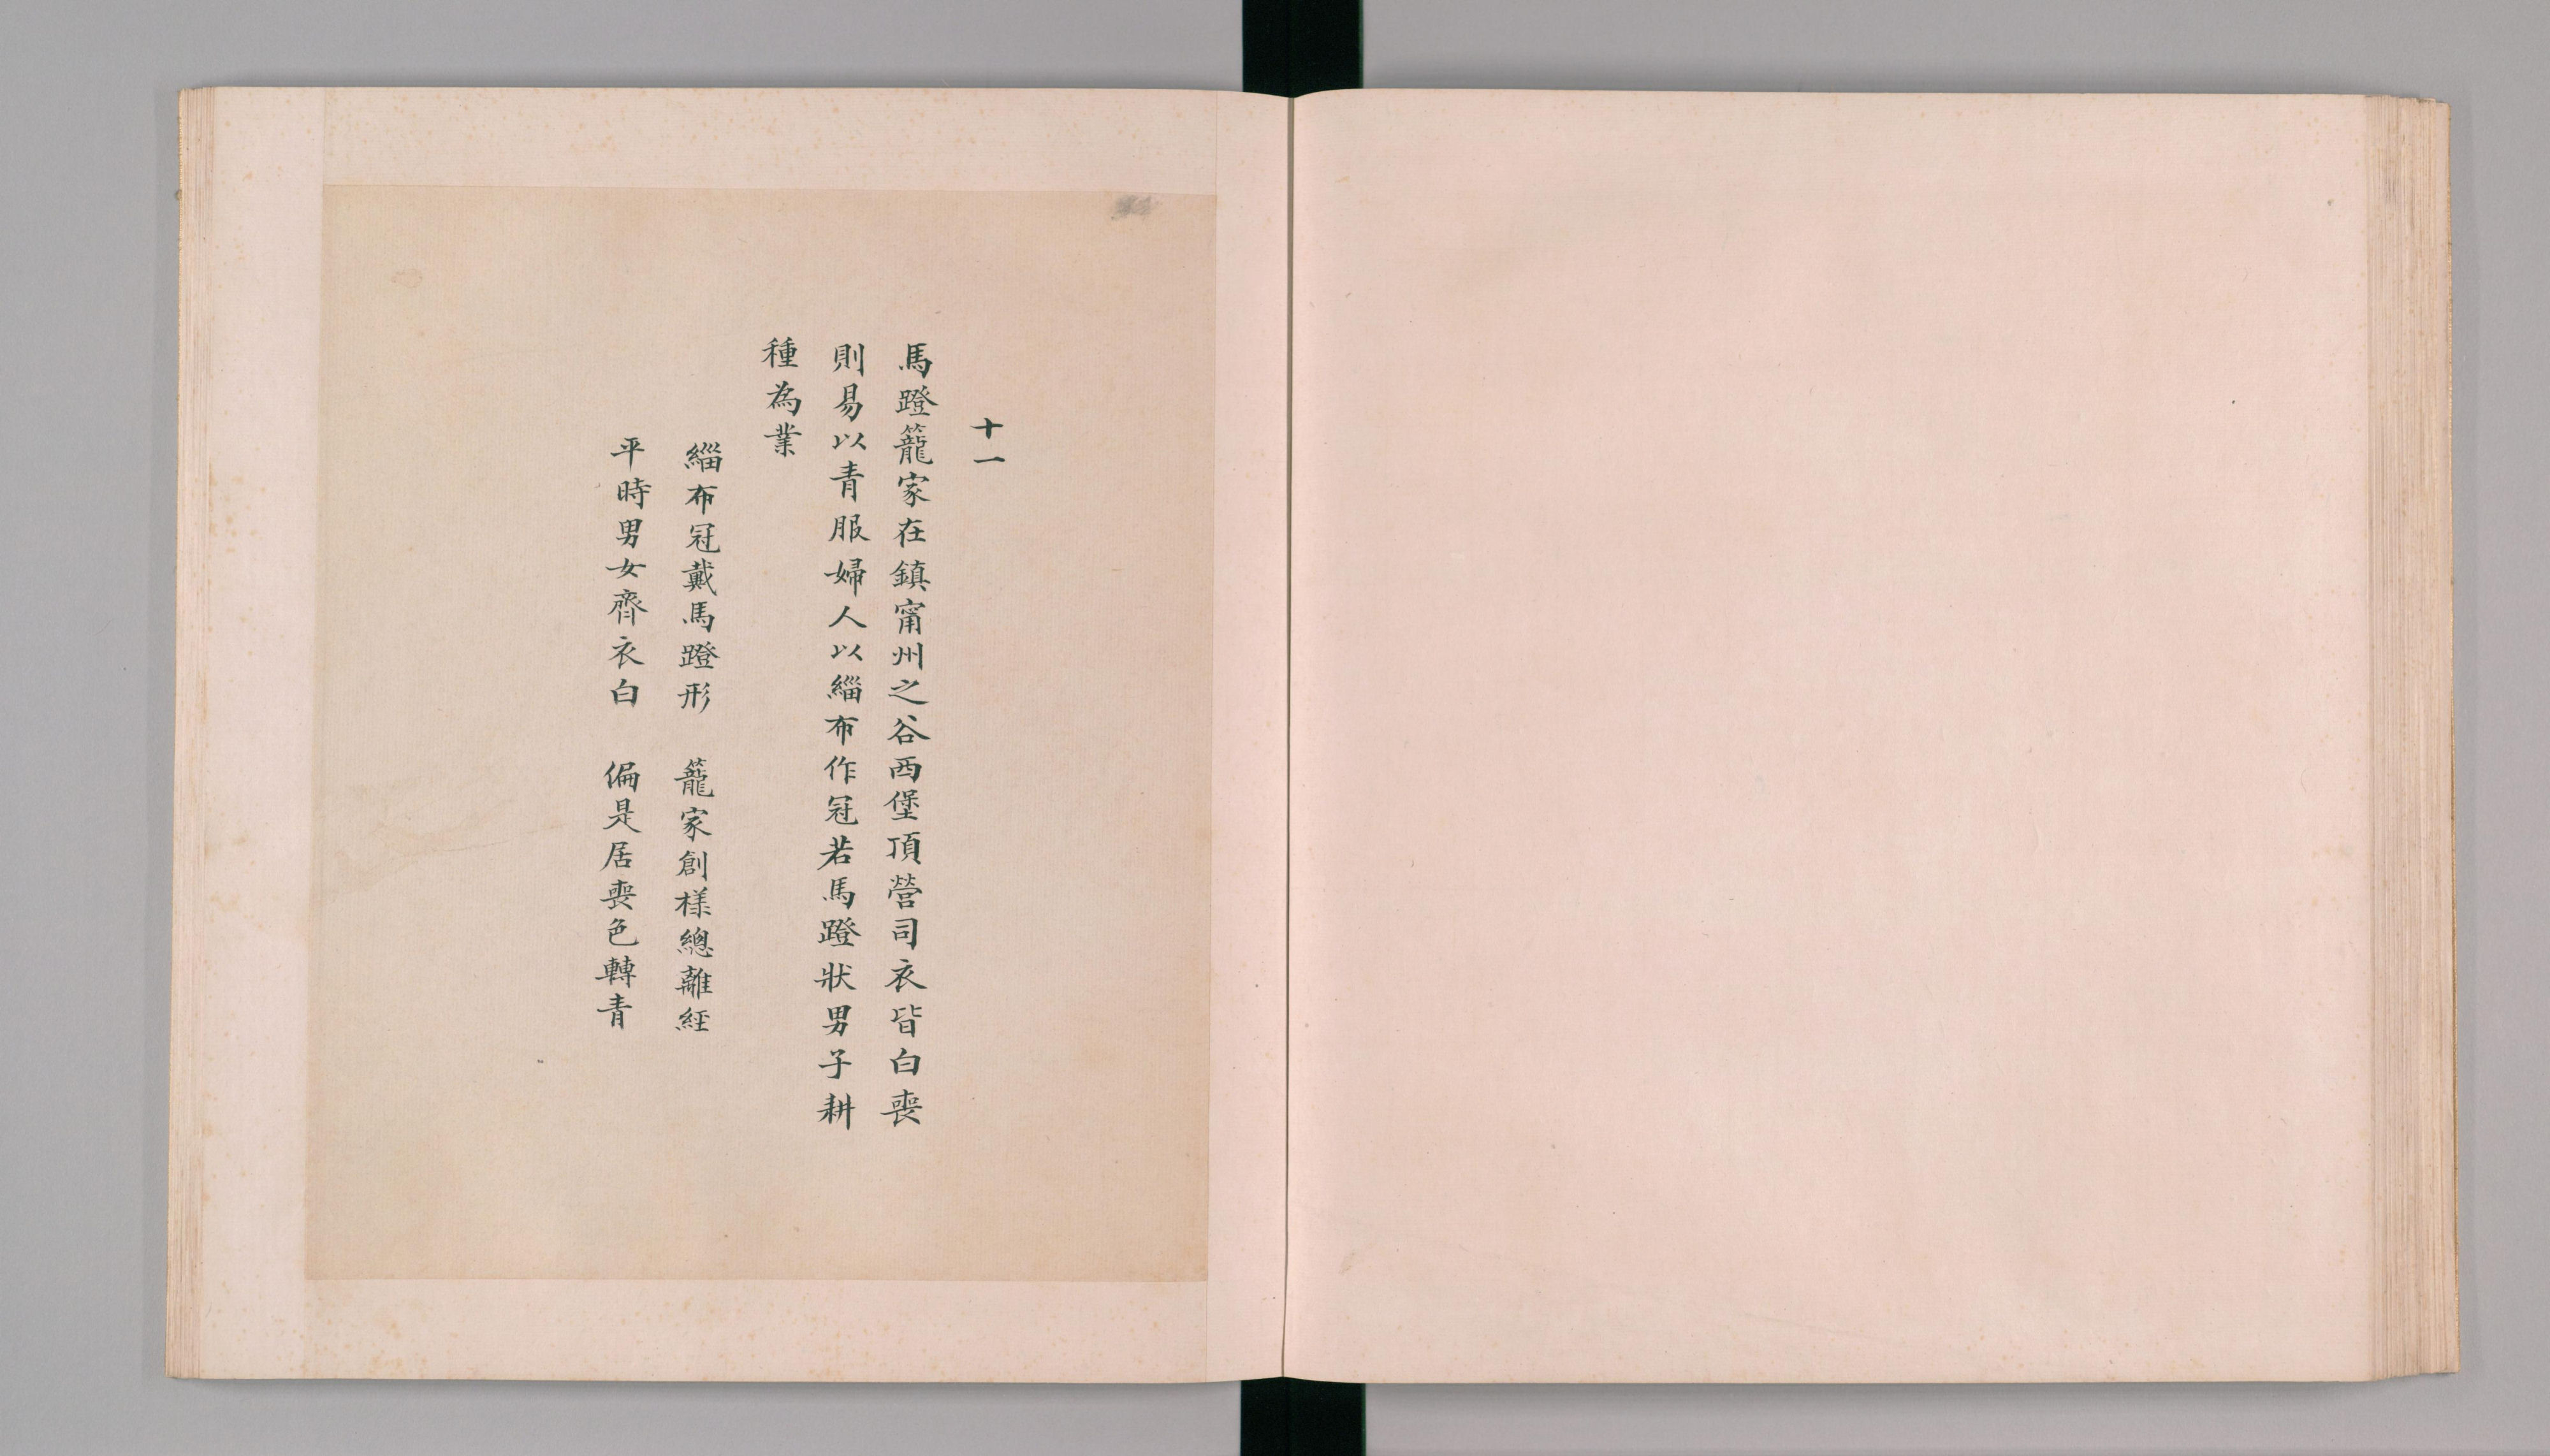 十一
馬蹬籠家在鎮甯州之谷西堡頂營司衣皆白喪
則易以青服婦人以緇布作冠若馬蹬狀男子耕
種為業
緇布冠戴馬蹬形　籠家創樣總離經
平時男女齊衣白　偏是居喪色轉青